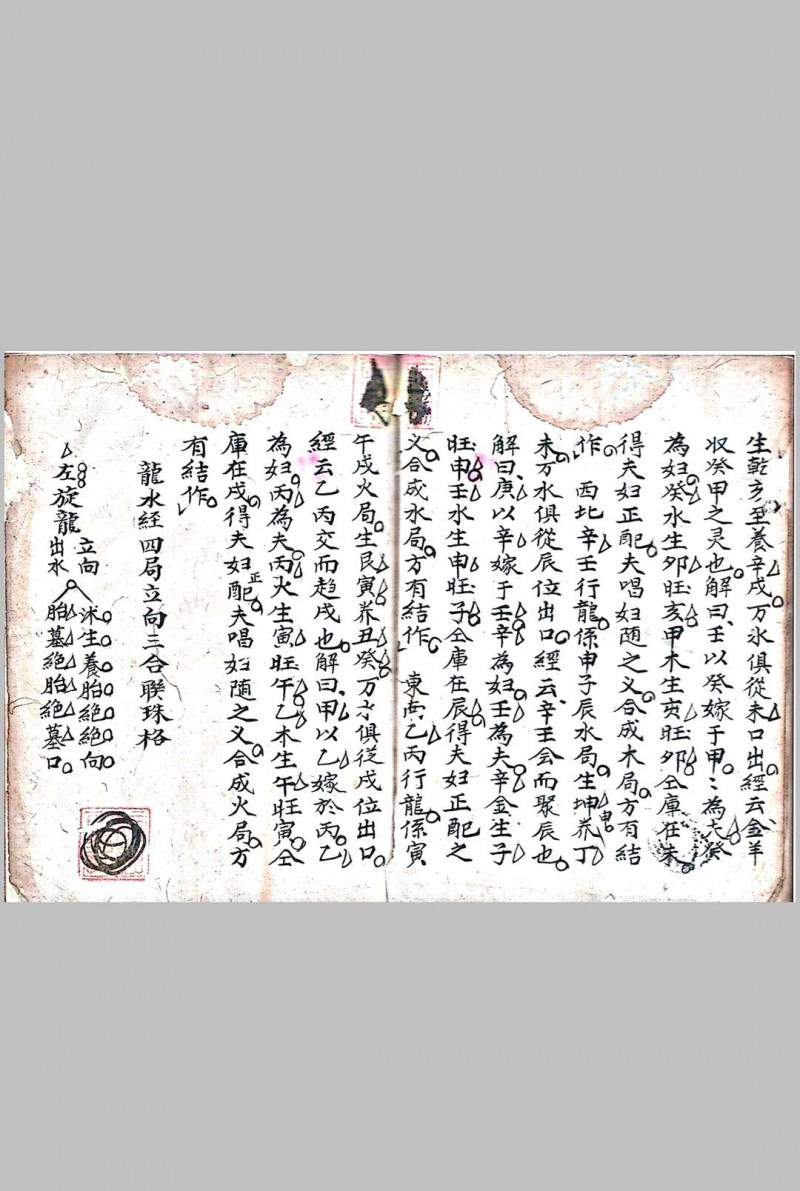 生乾亥至養辛戌万水俱從未口出經云金羊
收癸甲之灵也解曰壬以癸嫁于甲〻為夫癸
為妇癸水生卯旺亥甲木生亥旺卯仝庫在未
得夫妇正配夫唱妇随之义合成木局方有結
作 西北辛壬行龍係申子辰水局生坤申养丁
未万水俱從辰位出口經云辛壬会而聚辰也
解曰庚以辛嫁于壬辛為妇壬為夫辛金生子
旺申壬水生申旺子仝庫在辰得夫妇正配之
义合成水局方有結作 東南乙丙行龍係寅
午戌火局生艮寅养丑癸万水俱從戌位出口
經云乙丙交而趋戌也解曰甲以乙嫁於丙乙
為妇丙為夫丙火生寅旺午乙木生午旺寅仝
庫在戌得夫妇正配夫唱妇随之义合成火局方
有結作
龍水経四局立向三合聯珠格
左旋龍
立向 沐生養胎絕絕向
出水 胎墓絕胎絕墓口